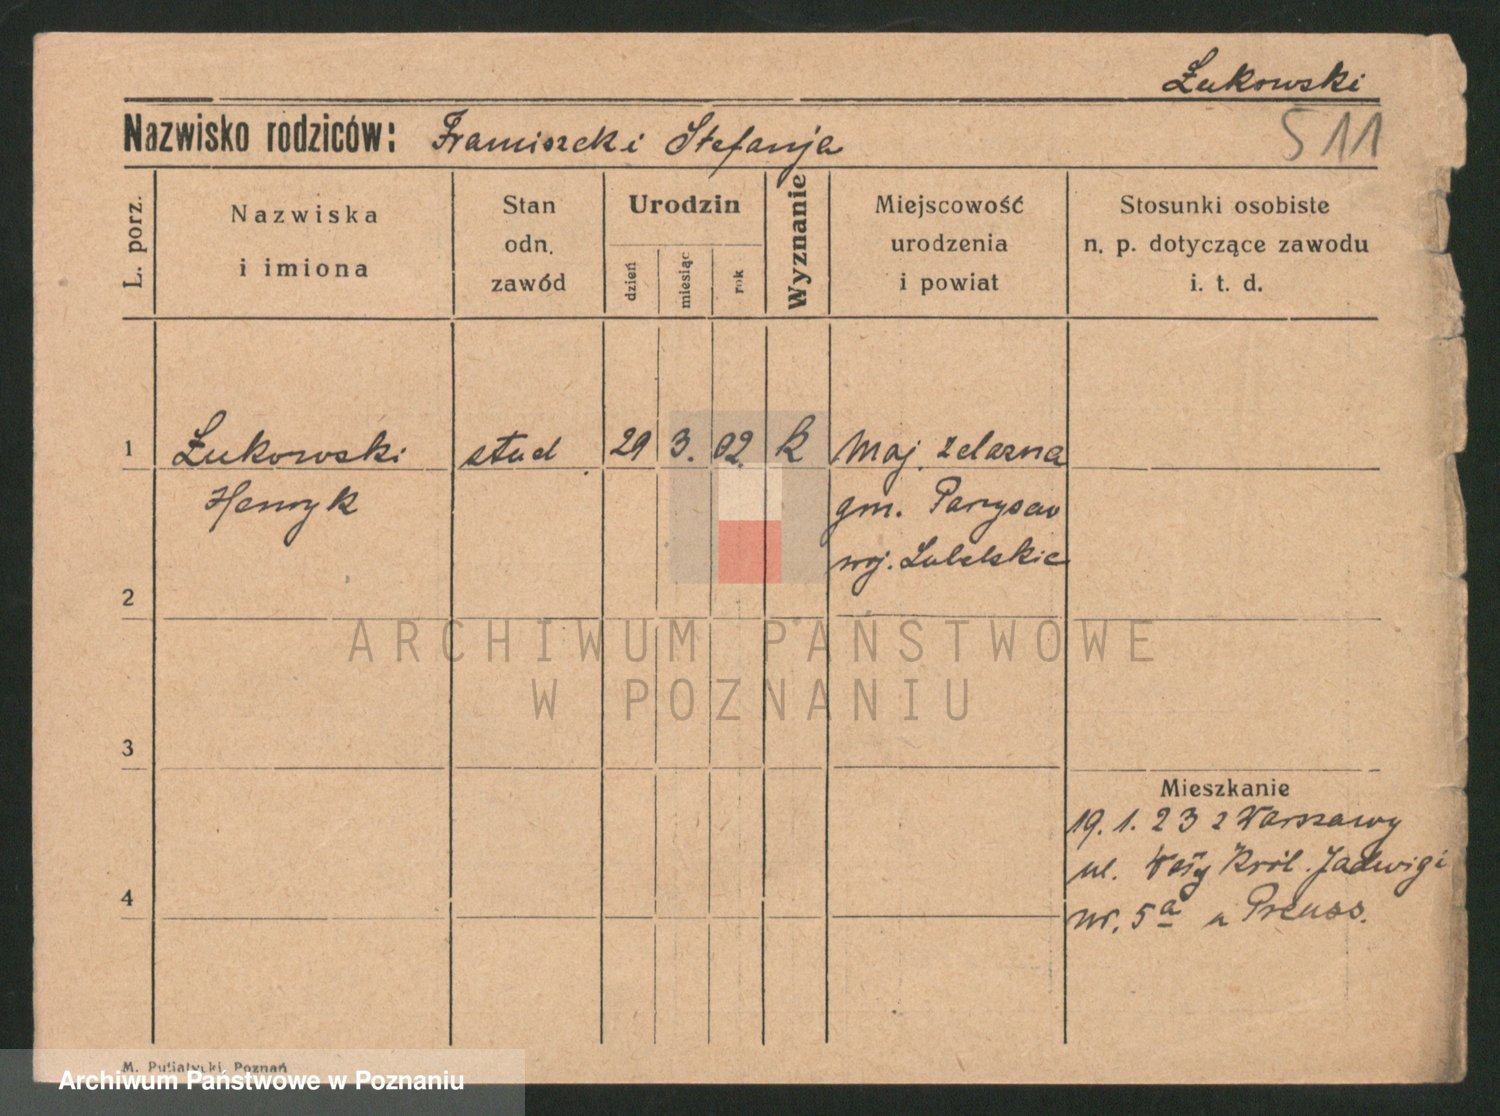 Żukowski
Nazwisko rodziców: Franciszek i Stefanja
511
L. porz.
Nazwiska
i imiona
Stan
odn.
zawód
Urodzin
dzień
miesiąc
rok
Wyznanie
Miejscowość
urodzenia
i powiat
Stosunki osobiste
n. p. dotyczące zawodu
i. t. d.
1 Żukowski stud 29 3. 02. k Maj. Żelazna
Henryk gm. Parysów
woj. Lubelskie
2
ARCHIWUM PAŃSTWOWE
W POZNANIU
3
Mieszkanie
19. 1. 23 z Warszawy
ul. Wały Król. Jadwigi
4
nr. 5a u Preuss.
M. Putiatycki, Poznań
Archiwum Państwowe w Poznaniu